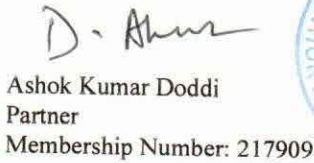 Ashok Kumar Doddi
Partner
Membership Number: 217909